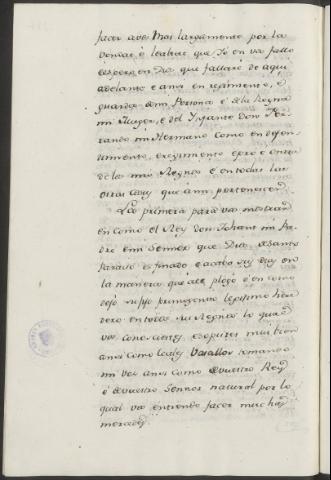 facer a vos mas largamente por la
bondat é lealtat que Yo en vos fallo
é espero en Dios que fallaré de aqui
adelante é ansi en regimiento, é
guarda de mi Persona é de la Reyna
mi Muger, é del Ynfante Don Fer-
rando mi Hermano como en defen-
dimiento, é regimiento é pro é onrra
de los mis Regnos é en todas las
otras cosas que á mi pertenescen.
Lo primero para vos mostrar
en como el Rey don Johan mi Pa-
dre é mi Sennor que Dios dé Santo
Paraiso es finado é acabó sus dias en
la manera que á el plogó é en como
dejó su fijo primogenito legitimo here-
dero en todos sus Regnos lo qual
vos conoscientes é sopistes mui bien
ansi como leales Vasallos tomando
mi voz ansi como de vuestro Rey
é de vuestro Sennor natural por lo
qual vos entiendo facer muchas
mercedes.